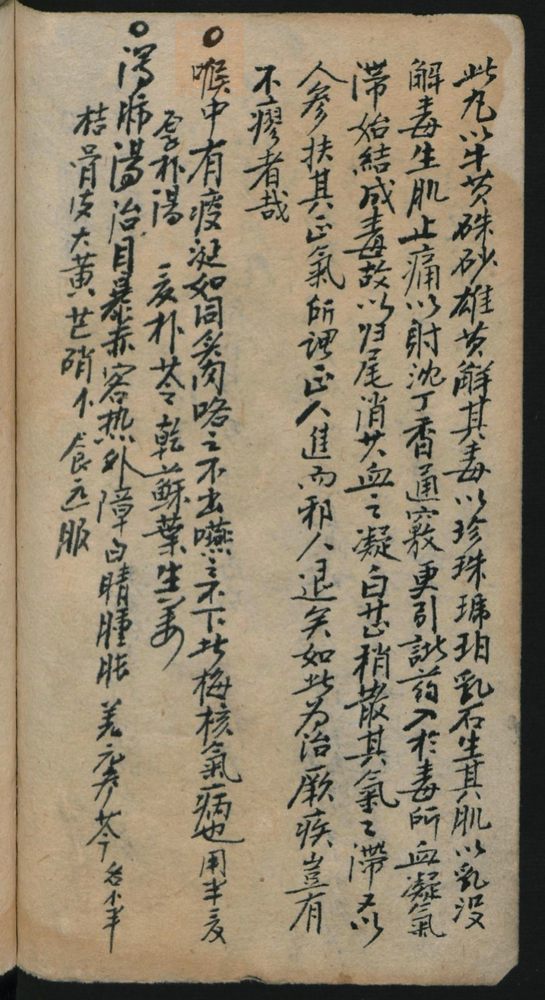 此九以牛黄硃砂雄黄解其毒以珍珠琥珀乳石生其肌以乳没
解毒生肌止痛以射沈丁香通竅更引諸葯入於毒所血凝氣
滞始結成毒故以归尾消其血之凝白芷稍散其氣之滯又以
人參扶其正氣所謂正人進而邪人退矣如此为治厥疾豈有
不瘳者哉
○喉中有痰涎如同炙肉咯之不出嚥之不下此梅核氣病也用半夏
厚朴湯 夏朴苓乾蘇葉生姜
○瀉肺湯治目暴赤客热外障白睛腫脹 羌 芩各小半
桔骨皮大黄芒硝 食远服